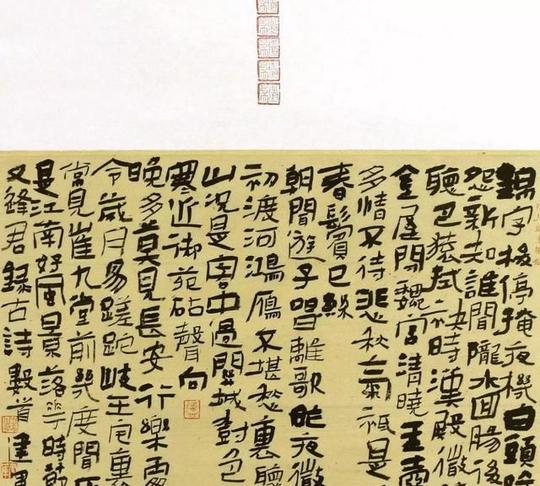 錦字梭停掩夜機白頭吟
怨新知誰聞隴水回腸後
聽巴猿拭淚時漢殿微
金屋閉魏宮清曉玉壺
多情不待悲秋氣祇是
春鬢已絲
朝聞遊子唱離歌昨夜微
初渡河鴻雁不堪愁裏聽
山況是客中過關城樹色
寒近御苑砧聲向
晚多莫見長安行樂處
令歲月易蹉跎岐王宅裏尋
常見崔九堂前幾度聞正
是江南好風景落花時節
又逢君錄古詩數首建